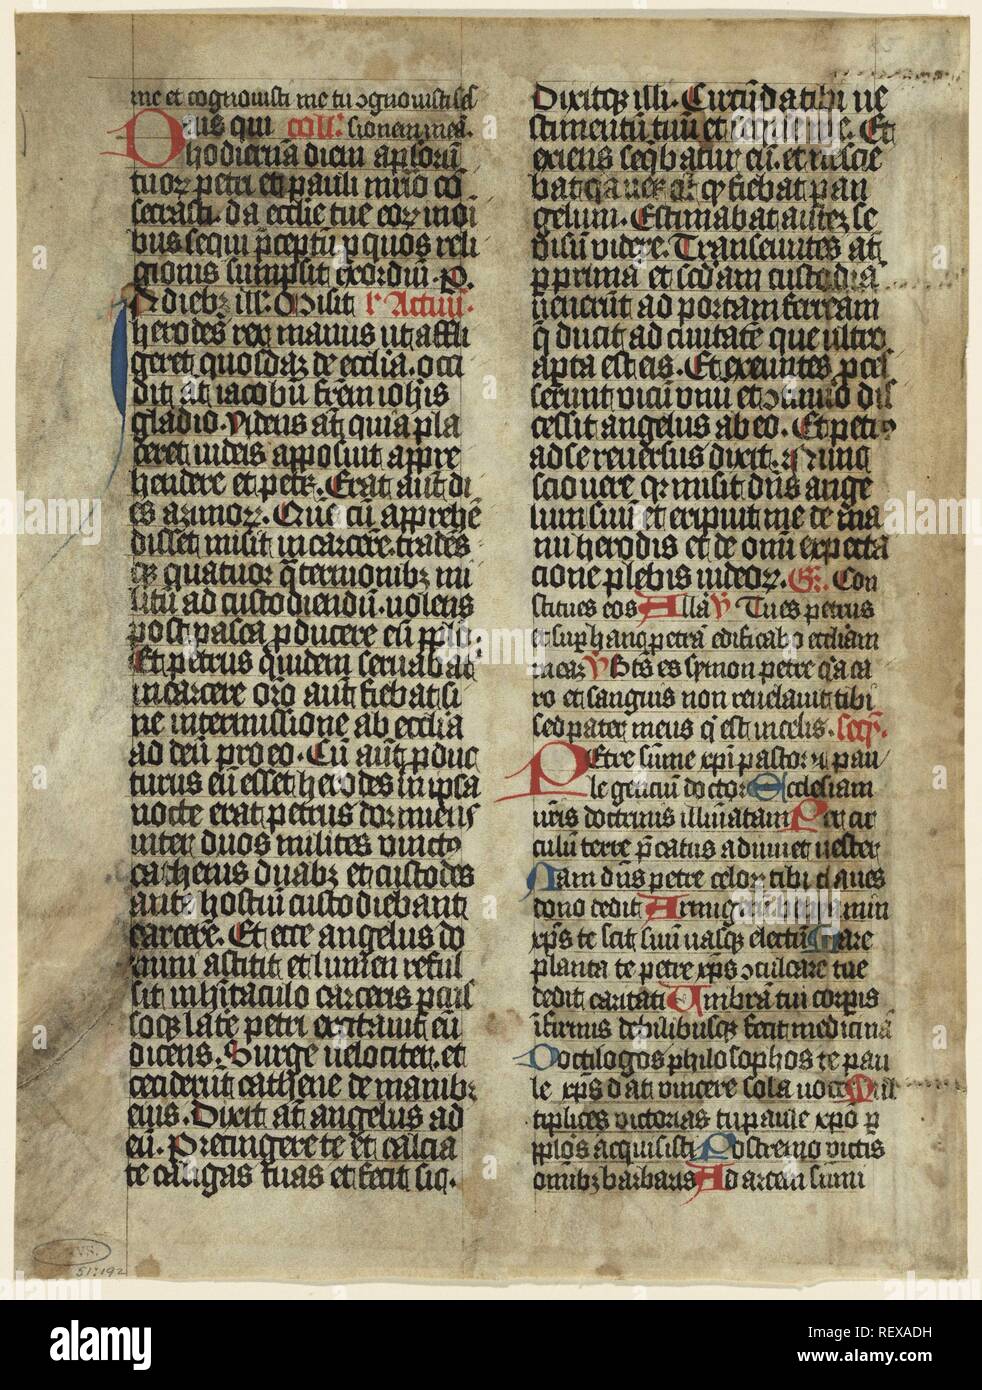 me et cognouisti me tu ꝯgnouisti ses
Deus qui coll'. sionem meā.
hodiernā diem apl'orū
tuoꝝ petri et pauli mr̄io cō
secrasti. da eccl'ie tue eoꝝ in oī
bus sequi p̄ceptū p quos reli
gionis sumpsit exordiū. P.
In diebꝫ ill'. Misit r Actuū.
herodes rex manus ut affli
geret quosdaꝫ de eccl'ia. occi
dit at̄ iacobū fr̄em ioh'is
gladio. Videns at̄ quia pla
ceret iudeis apposuit appre
hendere et petrꝫ. Erat aut̄ di
es aꝫimoꝝ. Quē cū apprehē
disset misit in carcerē. trādēs
eꝫ quatuor q̄ternionibꝫ mi
litū ad custodiendū. uolens
post pasca ꝓducere eū ppl'o.
Et petrus q̄dem seruabat
in carcere oro aut̄ fiebat si
ne intermissione ab eccl'ia
ad deū pro eo. Cū aut̄ ꝓduc
turus eū esset herodes in ipsa
nocte erat petrus dormiens
inter duos milites uinctꝰ
cathenis duabꝫ et custodes
ante hostiū custodiebant
carcerē. Et ecce angelus do
mini astitit et lumen reful
sit in h'itaculo carceris ꝑcus
soqꝫ latē petri excitauit eū
dicens. Surge uelociter. et
ceciderūt cathene de manibꝫ
eius. Dixit at̄ angelus ad
eū. Precingere te et calcia
te caligas tuas et fecit sic.
Dixitqꝫ illi. Circūda tibi ue
stimentū tuū et sequere me. Et
exiens seq̄batur eū. et nescie
bat q̄a uerū ē qꝫ fiebat ꝑ an
gelum. Estimabat auteꝫ se
uisū videre. Transeuntes at̄
ꝑ primā et sc'dam custodiā
uenerūt ad portam ferream
q̄ ducit ad ciuitatē que ultro
aꝑta est eis. Et exeuntes ꝓces
serunt vicū unū et ꝯtinuo dis
cessit angelus ab eo. Et petrꝰ
ad se reuersus dixit. Nunc
scio uere qꝛ misit dn̄s ange
lum suū et eripuit me de ma
nu herodis et de om̄i expecta
cione plebis iudeoꝝ. Gr. Con
stitues eos Alla V Tu es petrus
et suꝑ hanc petrā edificabo eccl'iam
meaꝫ V Bt̄s es symon petre q̄a ca
ro et sanguis non reuelauit tibi
sed pater meus q̄ est in celis. seq̄.
PEtre sūme xp̄i pastor et pau
le genciū doctor Ecclesiam
ur̄is doctrinis illūi̇atam Per cir
culū terre p̄catus adiuuet uester
Nam dn̄s petre celoꝝ tibi claues
dono dedit Armigerū beniamin
xp̄s te scit suū uasqꝫ electū Mare
planta te petre xp̄s ꝯculcare tue
dedit caritati Umbrā tui corꝑis
īfirmis debilibusqꝫ fecit medicinā
Doctilogos philosophos te pau
le xp̄s dat vincere sola uoce Mul
tiplices victorias tu paule xp̄o ꝑ
ppl'os acquisisti Postremo victis
om̄ibꝫ barbaris Ad arcem sūmi
51:192
alamy
REXADH
www.alamy.com